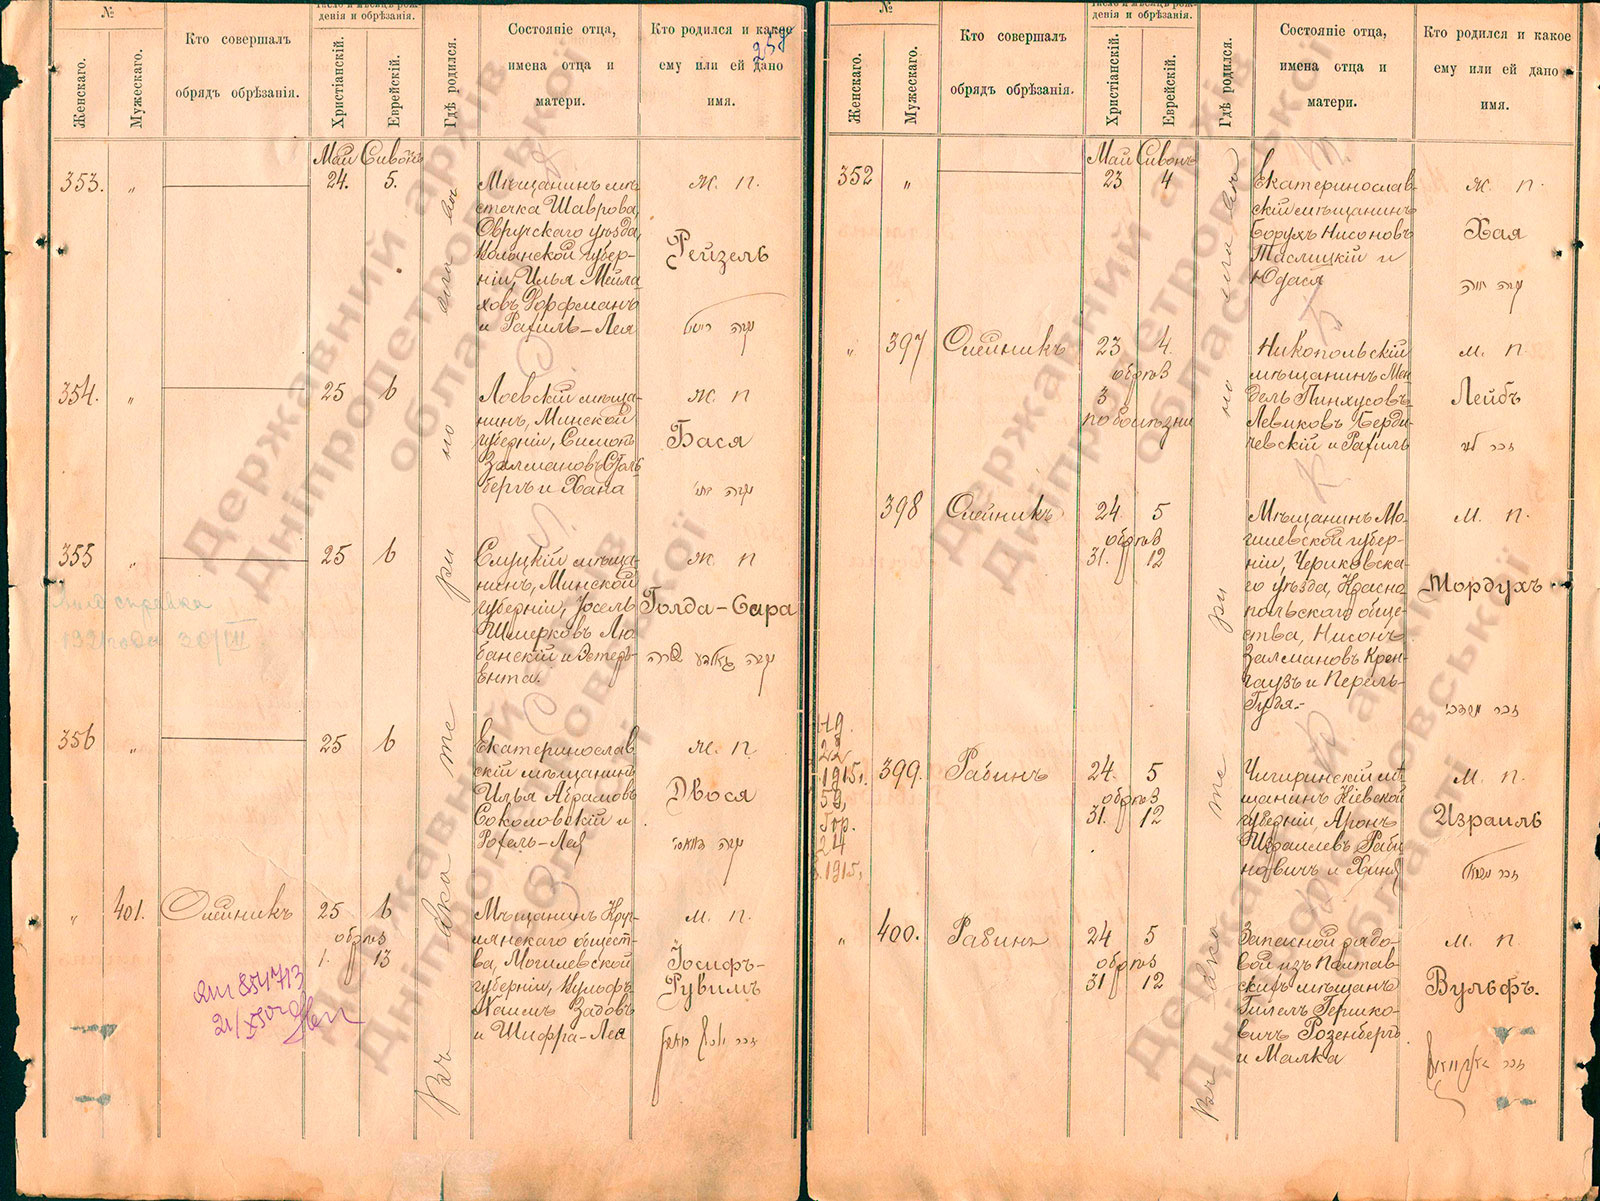 №
Женскаго.
Мужескаго.
Кто совершалъ
обрядъ обрѣзанія.
Число и мѣсяцъ рож-
денія и обрѣзанія.
Христіанскій.
Еврейскій.
Гдѣ родился.
Состояніе отца,
имена отца и
матери.
Кто родился и какое
ему или ей дано
имя.
Май Сивонъ
353. „
24. 5.
Мѣщанинъ мѣ-
стечка Шаврова,
Овручскаго уѣзда,
Волынской губер-
ніи, Илья Мейла-
ховъ Дорфманъ
и Рахиль-Лея
Ж. П.
Рейзель
354. „
25 6
Лоевскій мѣща-
нинъ, Минской
губерніи, Симонъ
Залмановъ Столь-
бергъ и Хана
Ж П
Бася
355 „
25 6
Слуцкій мѣща-
нинъ, Минской
губерніи, Іосель
Шмерковъ Лю-
банскій и Эстеръ-
Ента.
Ж П
Голда-Сара
356 „
25 6
Екатеринослав
скій мѣщанинъ
Илья Абрамовъ
Соколовскій и
Рохель-Лея
Ж. П
Двося
„ 401. Олейникъ
25 6
обрѣз
1. 13
Мѣщанинъ Круг-
лянскаго общест-
ва, Могилевской
губерніи, Вульфъ
Хаимъ Задовъ
и Шифра-Лея
М. П.
Іосифъ-
Рувимъ
Въ яка те ри но сла вѣ
Державний архів
Дніпропетровської
області
№
Женскаго.
Мужескаго.
Кто совершалъ
обрядъ обрѣзанія.
Число и мѣсяцъ рож-
денія и обрѣзанія.
Христіанскій.
Еврейскій.
Гдѣ родился.
Состояніе отца,
имена отца и
матери.
Кто родился и какое
ему или ей дано
имя.
Май Сивонъ
352 „
23 4
Екатеринослав-
скій мѣщанинъ
Борухъ Нисоновъ
Таслицкій и
Юдася
Ж П.
Хая
„ 397 Олейникъ
23 4.
обрѣз
3
по болѣзни
Никопольскій
мѣщанинъ Мен
дель Пинхусовъ-
Левиковъ Берди-
чевскій и Рахиль
М. П.
Лейбъ
398 Олейникъ
24. 5
обрѣз
31. 12
Мѣщанинъ Мо-
гилевской губер-
ніи, Чериковска-
го уѣзда, Красно
польскаго обще-
ства, Нисонъ
Залмановъ Крен-
гаузъ и Перель-
Гудя.-
М. П.
Мордухъ
399. Рабинъ
24. 5
обрѣз
31. 12
Чигиринскій мѣ
щанинъ Кіевской
губерніи, Аронъ
Израилевъ Раби
новичъ и Хиня
М. П.
Израиль
„ 400. Рабинъ
24 5
обрѣз
31 12
Запасной рядо-
вой изъ Полтав-
скихъ мѣщанъ
Гилель Гершко-
вичъ Розенбергъ
и Малка
М. П.
Вульфъ.
Державний архів
Дніпропетровської
області